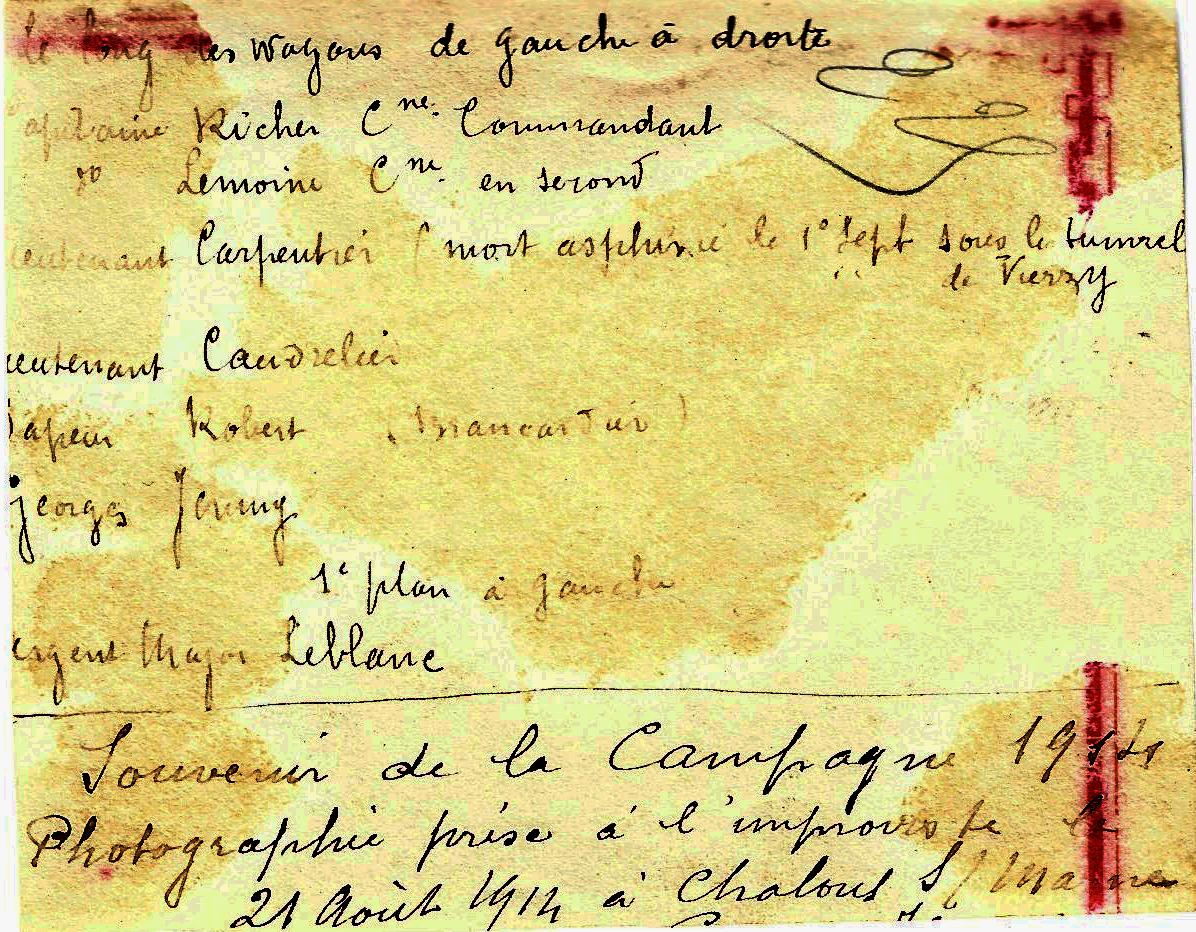 le long des wagons de gauche à droite
Capitaine Richer Cne. Commandant
do Lemoine Cne. en second
Lieutenant Carpentier (mort asphixié le 1e Sept sous le tunnel
de Vierzy
Lieutenant Caudrelier
Sapeur Robert (Brancardier)
Georges
1e plan à gauche
Sergent Major Leblanc
Souvenir de la Campagne 1914
Photographie prise à l'improviste le
21 Août 1914 à Chalons S/Marne